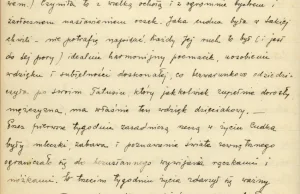 wem.) Czyniła to z wielką ochotą i z ogromnie bystrem i
żartobliwem naśladowaniem oczek. Jaka cudna była w takiej
chwili - nie potrafię napisać, każdy Jej ruch to był (i jest
do tej pory) idealnie harmonijny poemacik, uosobienie
wdzięku i subtelności doskonałej, co bezwarunkowo odziedzi-
czyła po swoim Tatusiu, który jakkolwiek zupełnie dorosły
mężczyzna, ma właśnie ten wdzięk dziecięcy. -
Przez pierwsze tygodnie zasadniczą rzeczą w życiu
były mleczko, zabawa i poznawanie świata zewnętrznego
ograniczało się do bezustannego wywijania rączkami i
nóżkami. W trzecim tygodniu życia zdarzył się ważny